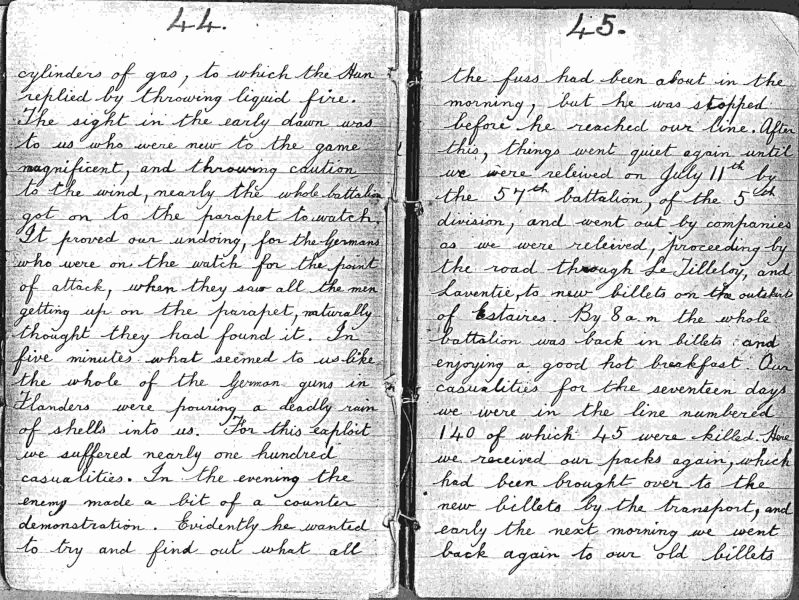 44.
cylinders of gas, to which the Hun
replied by throwing liquid fire.
The sight in the early dawn was
to us who were new to the game
magnificent, and throwing caution
to the wind, nearly the whole battalion
got on to the parapet to watch.
It proved our undoing, for the Germans
who were on the watch for the point
of attack, when they saw all the men
getting up on the parapet, naturally
thought they had found it. In
five minutes what seemed to us like
the whole of the German guns in
Flanders were pouring a deadly rain
of shells into us. For this exploit
we suffered nearly one hundred
casualities. In the evening the
enemy made a bit of a counter
demonstration. Evidently he wanted
to try and find out what all
45.
the fuss had been about in the
morning, but he was stopped
before he reached our line. After
this, things went quiet again until
we were releived on July 11th by
the 57th battalion, of the 5th
division, and went out by companies
as we were releived, proceeding by
the road through Le Tilleloy, and
Laventie, to new billets on the outskirts
of Estaires. By 8 a.m the whole
battalion was back in billets and
enjoying a good hot breakfast. Our
casualities for the seventeen days
we were in the line numbered
140 of which 45 were killed. Here
we received our packs again, which
had been brought over to the
new billets by the transport, and
early the next morning we went
back again to our old billets